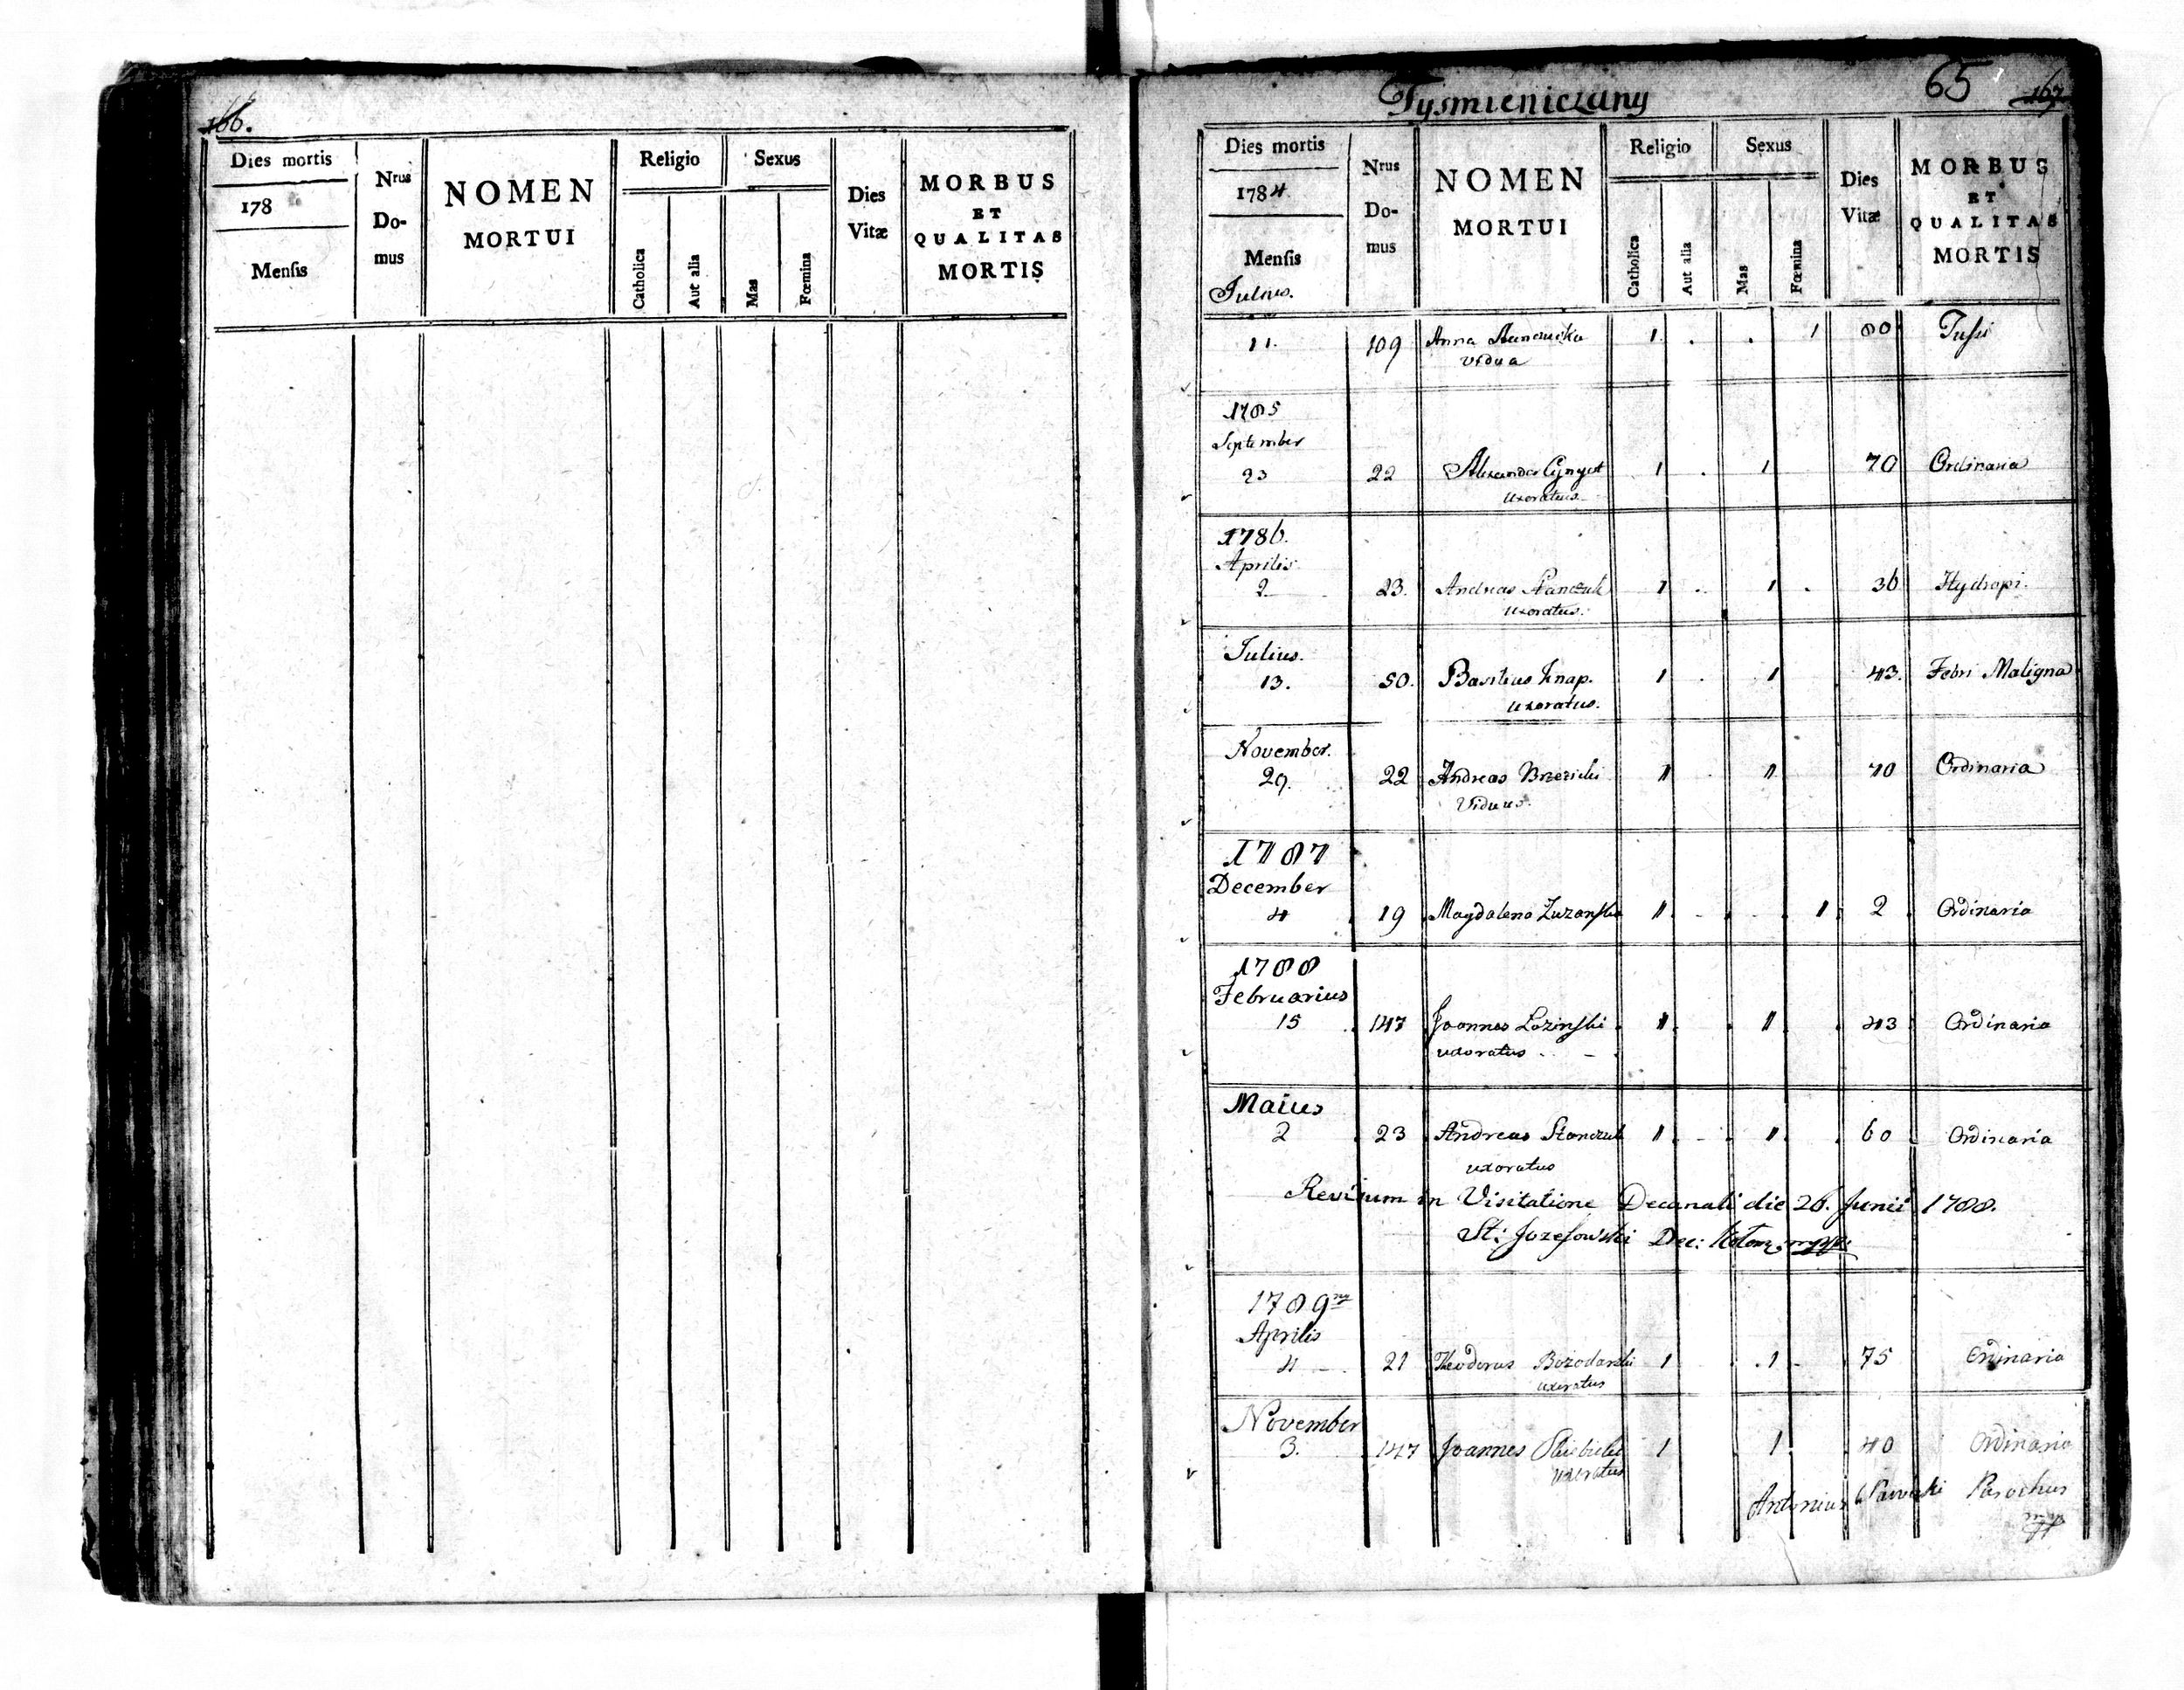 166.
Dies mortis
178
Mensis
Nrus
Do-
mus
NOMEN
MORTUI
Religio
Catholica
Aut alia
Sexus
Mas
Fœmina
Dies
Vitæ
MORBUS
ET
QUALITAS
MORTIS
Tysmieniczany
65 167
Dies mortis
1784.
Mensis
Julius.
Nrus
Do-
mus
NOMEN
MORTUI
Religio
Catholica
Aut alia
Sexus
Mas
Fœmina
Dies
Vitæ
MORBUS
ET
QUALITAS
MORTIS
11. 109 Anna 1 . . 1 80 Tussi
Vidua
1785
September
23 22 Alexander 1 . 1 70 Ordinaria
Uxoratus
1786.
Aprilis
2 23. Andreas Stanczuk 1 . 1 . 36 Hydropi.
uxoratus.
Julius.
13. 50. Basilius Knap. 1 . 1 43. Febri Maligna
uxoratus.
November.
29. 22 Andreas Brzezicki 1 . 1 70 Ordinaria
Viduus.
1787
December
4 19 Magdalena 1 . . 1 2 Ordinaria
1788
Februarius
15 147 Joannes Lozinski 1 1 43 Ordinaria
uxoratus
Maius
2 23 Andreas Stanczuk 1 . 1 60 Ordinaria
uxoratus
Revisum in Visitatione Decanali die 26. Junii 1788.
St: Jozefowski Dec:
1789
Aprilis
4 21 Theodorus 1 . 1 75 Ordinaria
uxoratus
November
3. 147 Joannes 1 1 40 Ordinaria
uxoratus
Antonius Parochus
mpp